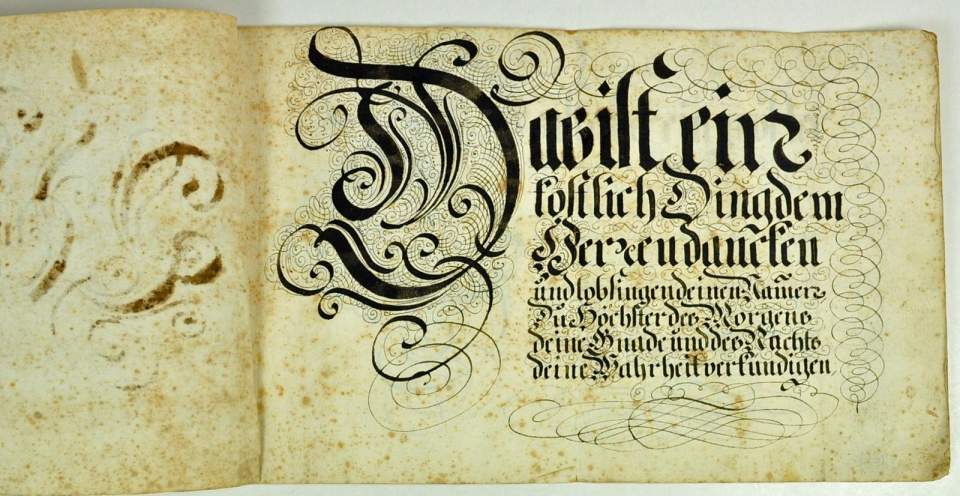 Das ist ein
kostlich Ding dem
Herren dancken
und lobsingen deinen Namen
Du Höchster des Morgens
deine Gnade und des Nachts
deine Wahrheit verkundigen